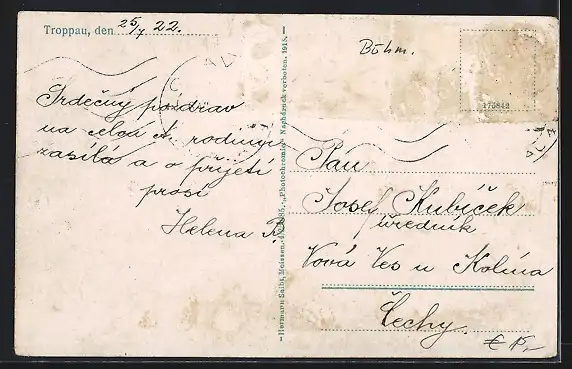 Troppau, den 25/7 22.
Srdečný pozdrav
na celou ct. rodinu
zasílá a o přijetí
prosí
Helena R.
Hermann Seibt, Meissen. "Photochromie" Nachdruck verboten. 1915.
Böhm.
175842
Pan
Josef Kubíček
úředník
Nová Ves u Kolína
Čechy.